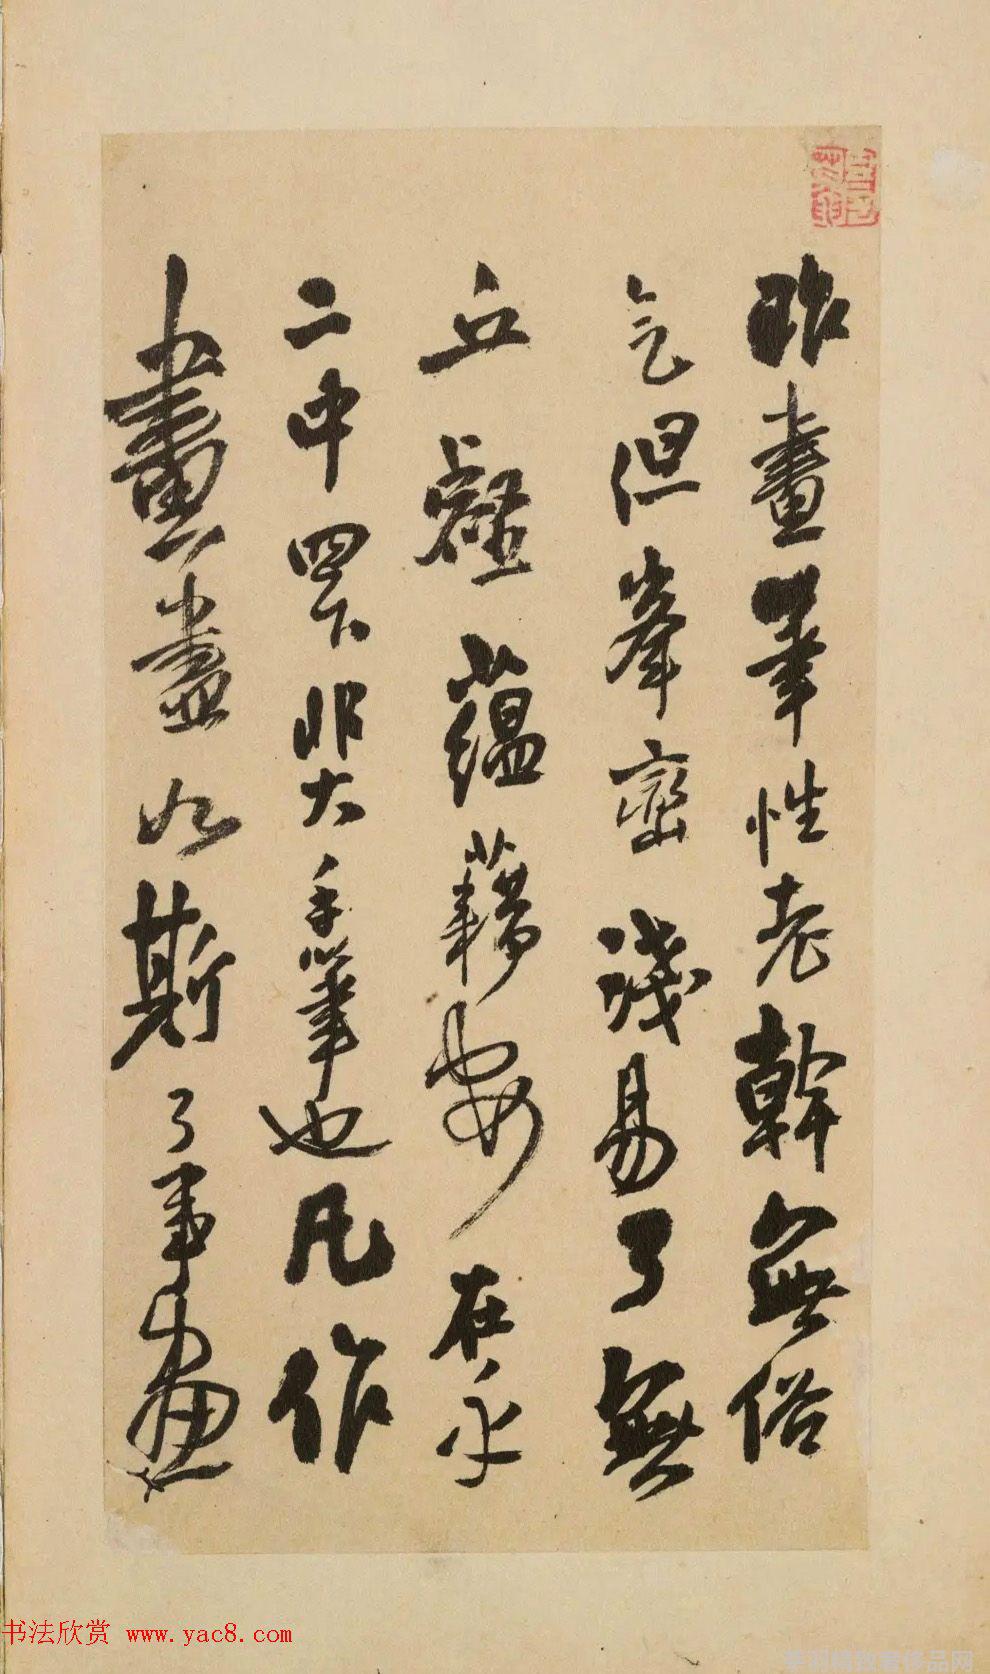 昨畫筆性老幹無俗
氣但峯巒淺易了無
丘壑蘊藉要在乎
二中四下非大手筆也凡作
畫盡如斯了事畫
书法欣赏 www.yac8.com